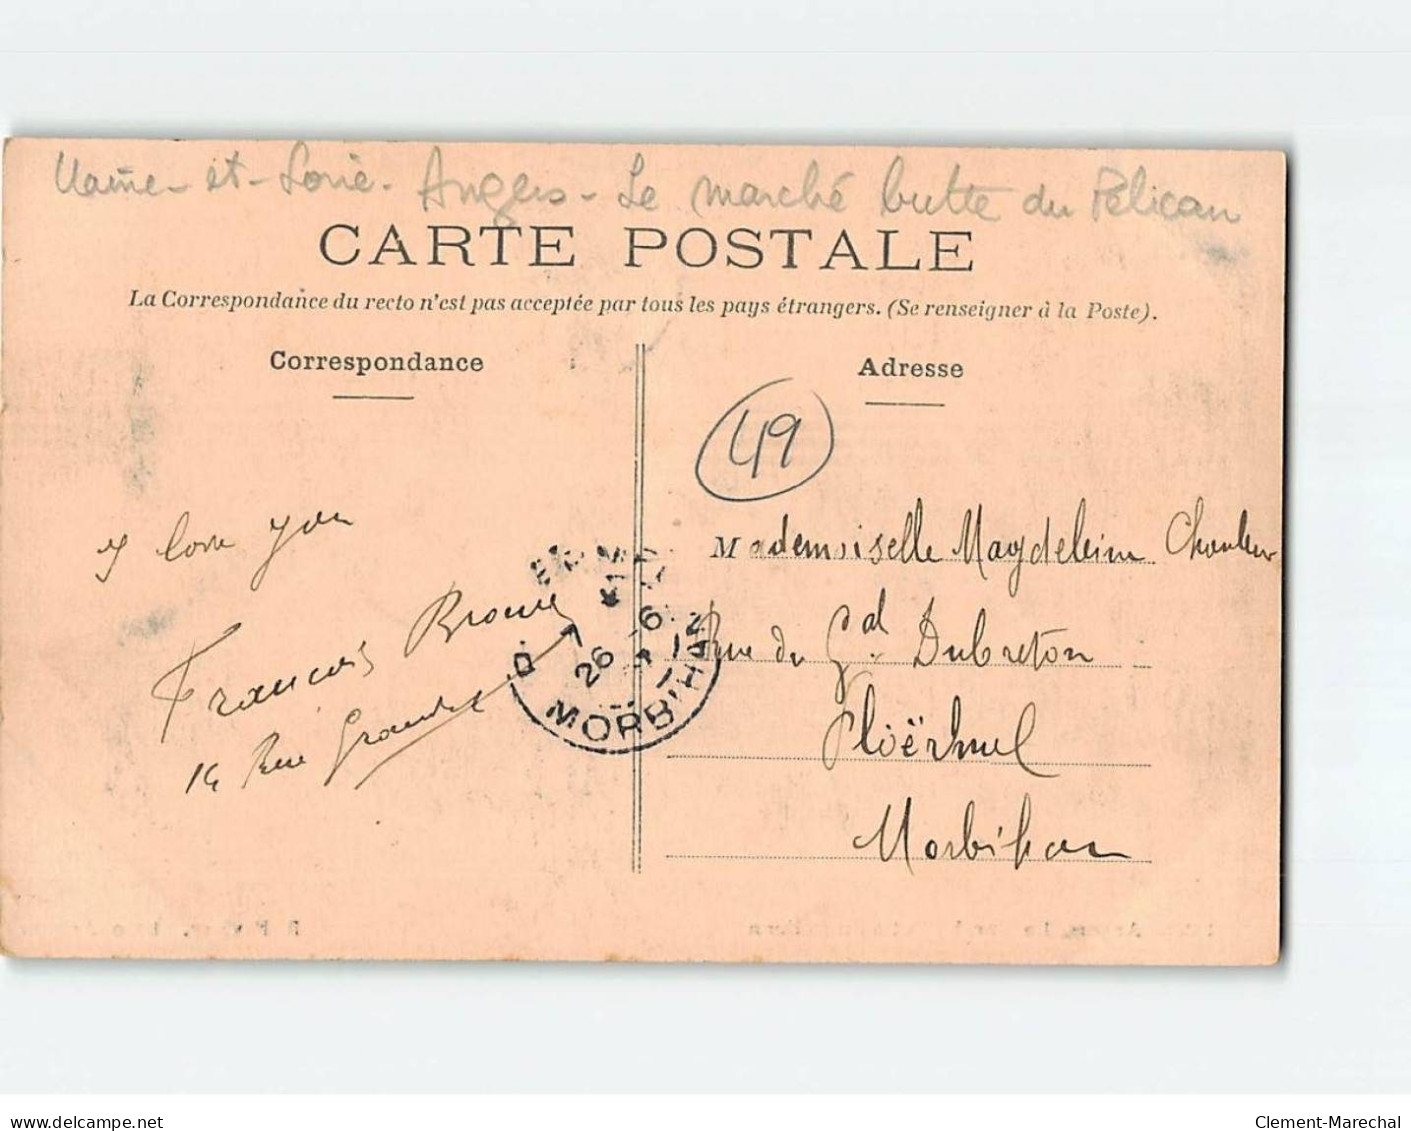 Maine-et-Loire. Angers - Le marché butte du Pélican
CARTE POSTALE
La Correspondance du recto n'est pas acceptée par tous les pays étrangers. (Se renseigner à la Poste).
Correspondance
Adresse
49
I love you
François
14 Rue
26 - 6
MORBIHAN
Mademoiselle Magdeleine
Rue du Gal Dubreton
Ploërmel
Morbihan
delcampe.net
Clement-Marechal